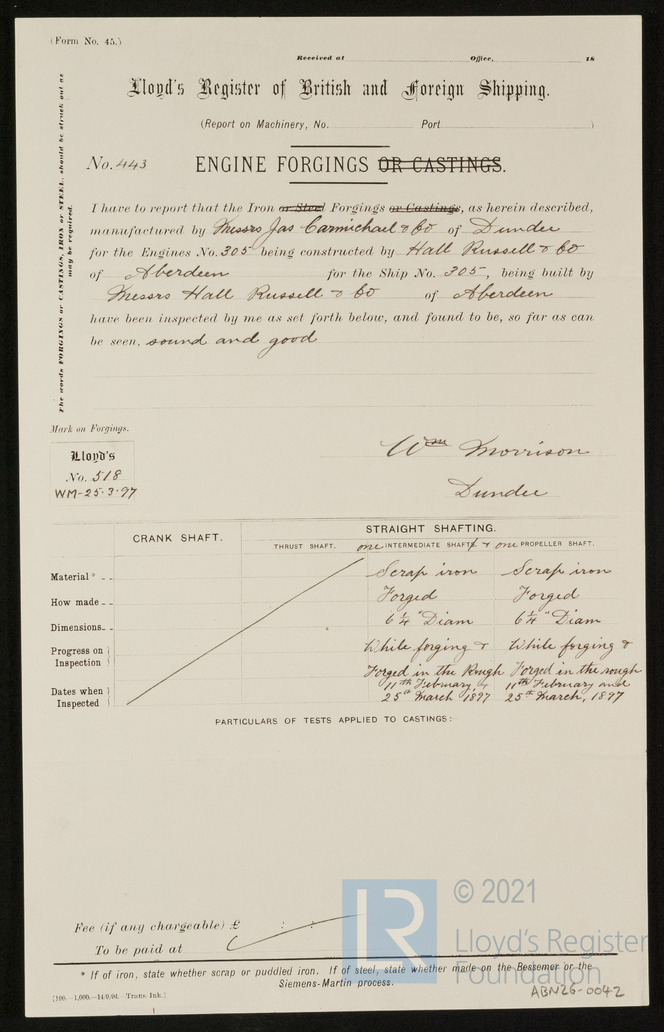 (Form No. 45.)
Received at Office, 18
Lloyd's Register of British and Foreign Shipping.
(Report on Machinery, No. Port )
No. 443 ENGINE FORGINGS OR CASTINGS.
The words FORGINGS or CASTINGS, IRON or STEEL, should be struck out as
may be required.
I have to report that the Iron or Steel Forgings or Castings, as herein described,
manufactured by Messrs Jas Carmichael & Co of Dundee
for the Engines No. 305 being constructed by Hall Russell & Co
of Aberdeen for the Ship No. 305, being built by
Messrs Hall Russell & Co of Aberdeen
have been inspected by me as set forth below, and found to be, so far as can
be seen, sound and good
Mark on Forgings.
Lloyd's
No. 518
WM-25.3.97
Wm Morrison
Dundee
CRANK SHAFT. STRAIGHT SHAFTING.
THRUST SHAFT. one INTERMEDIATE SHAFT & one PROPELLER SHAFT.
Material* Scrap iron Scrap iron
How made Forged Forged
Dimensions 6 1/4" Diam 6 1/4" Diam
Progress on Inspection While forging & While forging &
Forged in the Rough Forged in the rough
Dates when Inspected 11th February, & 11th February and
25th March 1897 25th March, 1897
PARTICULARS OF TESTS APPLIED TO CASTINGS:
Fee (if any chargeable) £ : :
To be paid at
* If of iron, state whether scrap or puddled iron. If of steel, state whether made on the Bessemer or the
Siemens-Martin process.
© 2021
LR
Lloyd's Register
Foundation
ABN26-0042